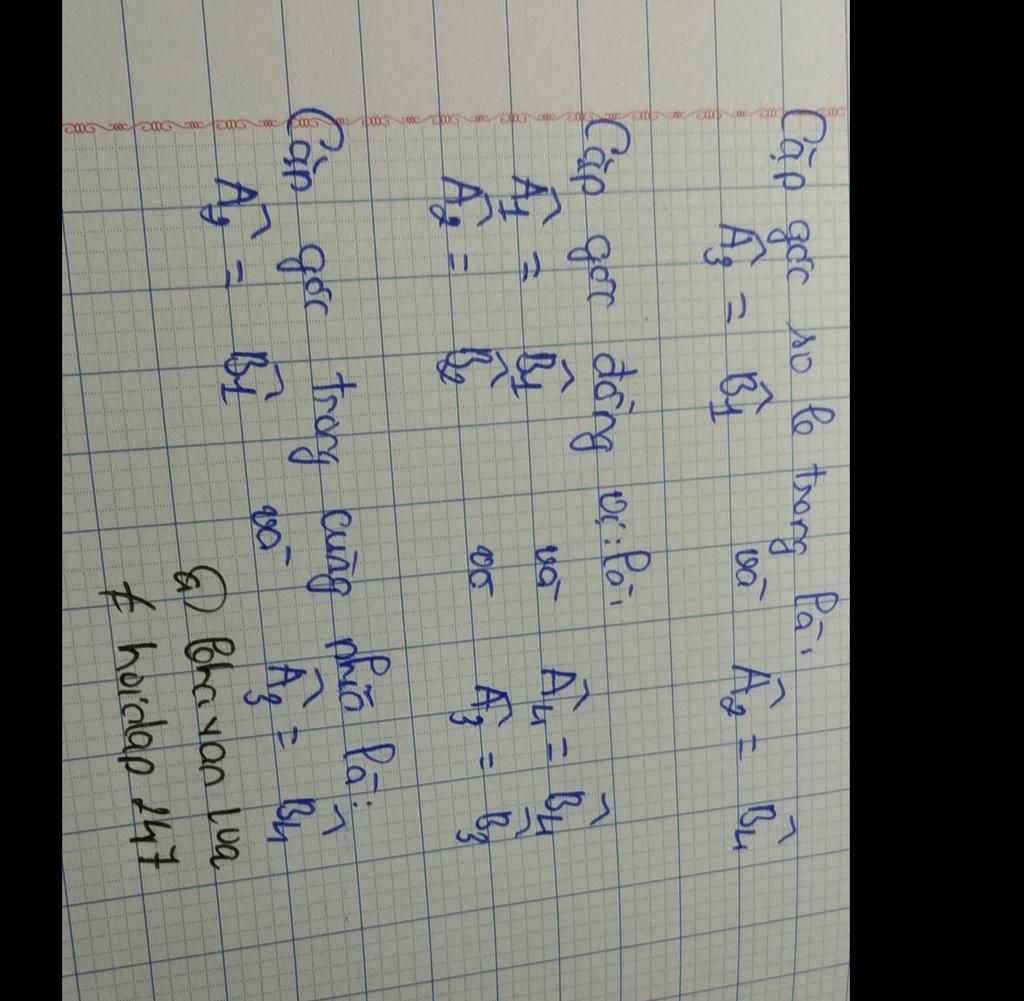 Cặp góc so le trong là:
Â3 = B̂1 và Â2 = B̂4
Cặp góc đồng vị là:
Â1 = B̂1 và Â4 = B̂4
Â2 = B̂2 và Â3 = B̂3
Cặp góc trong cùng phía là:
Â2 = B̂1 và Â3 = B̂4
@ khavanlua
≠ hoidap 247